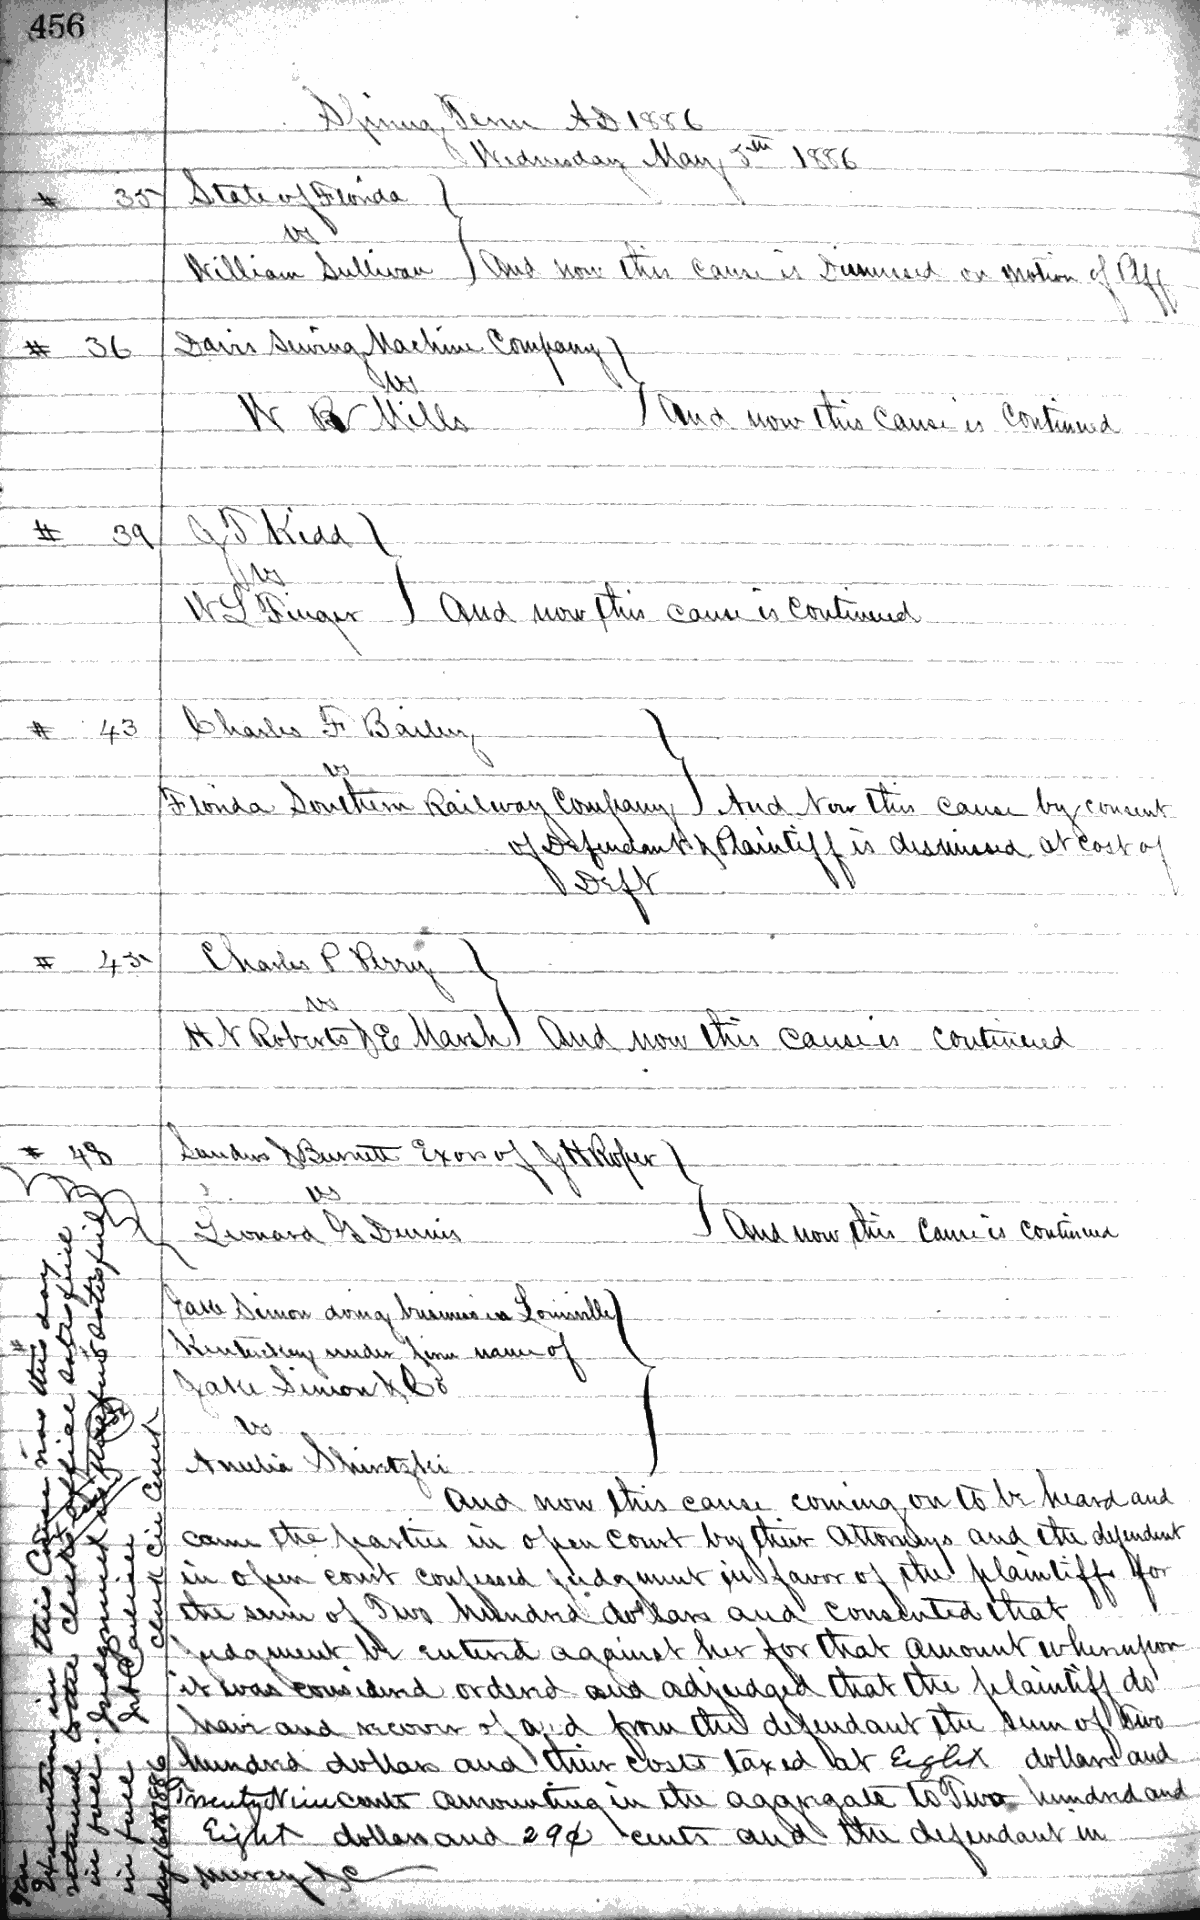 456
Spring Term AD 1886
Wednesday May 5th 1886
# 35 State of Florida
vs
William Sullivan } And now this cause is Dismissed on motion of Plff
# 36 Davis Sewing Machine Company
vs
W R Mills } And now this cause is Continued
# 39 J T Kidd
vs
W L Finger } And now this cause is Continued
# 43 Charles F Bailey
vs
Florida Southern Railway Company } And Now this cause by consent
of Defendant & Plaintiff is dismissed at Cost of
Deft
# 45 Charles P Perry
vs
H N Roberts & E Marsh } And now this cause is continued
# 48 Sanders & Burnett Exors of J H Roper
vs
Leonard G Dennis } And now this Cause is Continued
# Jake Simon doing business in Louisville
Kentucky under firm name of
Jake Simon & Co
vs
Amelia
And now this cause coming on to be heard and
came the parties in open court by their Attorneys and the defendent
in open court confessed judgment in favor of the plaintiffs for
the sum of Two hundred dollars and consented that
judgment be entered against her for that amount whereupon
it was considered ordered and adjudged that the plaintiff do
have and recover of and from the defendant the sum of Two
hundred dollars and their costs taxed at Eight dollars and
Twenty Nine cents amounting in the aggregate to Two hundred and
Eight dollars and 29¢ cents and the defendant in
mercy &c
Execution in this Cause was this day
returned to the Clerks office satisfied
in full. Judgment is therefore satisfied
in full
Clerk Cir Court